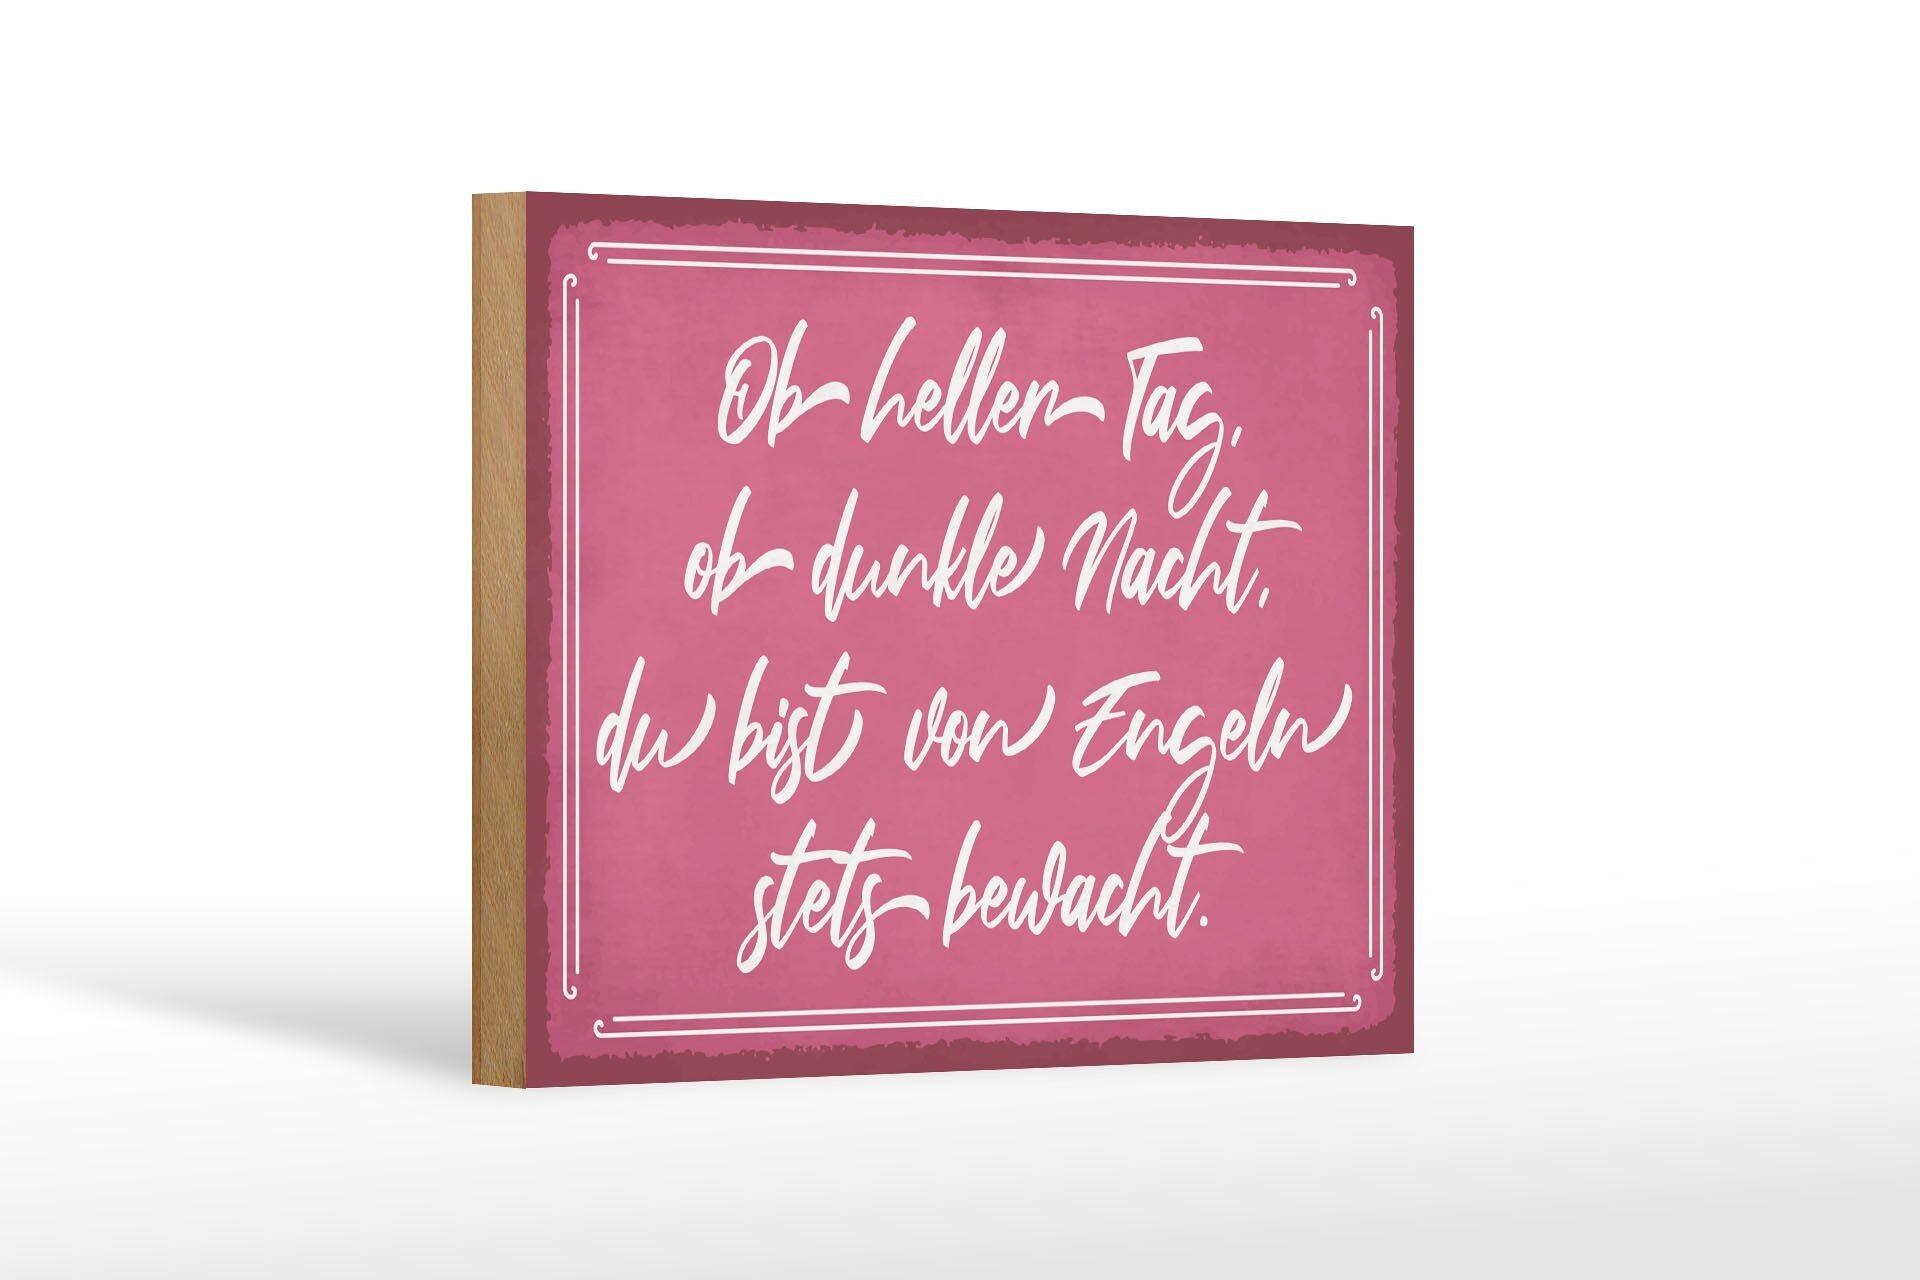 Ob heller Tag,
ob dunkle Nacht,
du bist von Engeln
stets bewacht.